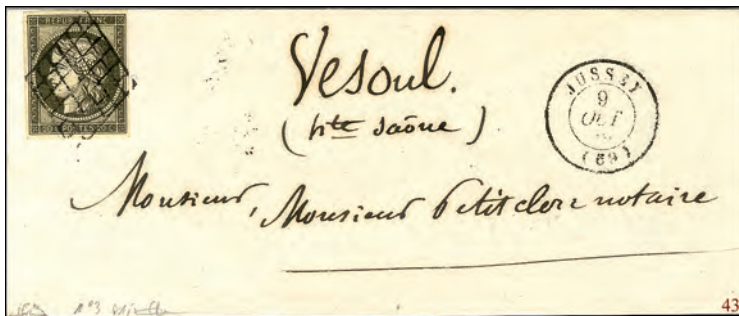 REPUB. FRANC.
20 c. POSTES 20 c.
Vesoul.
(hte Saône)
JUSSEY
9
OCT
(69)
Monsieur, Monsieur Petitclerc notaire
n°3
43